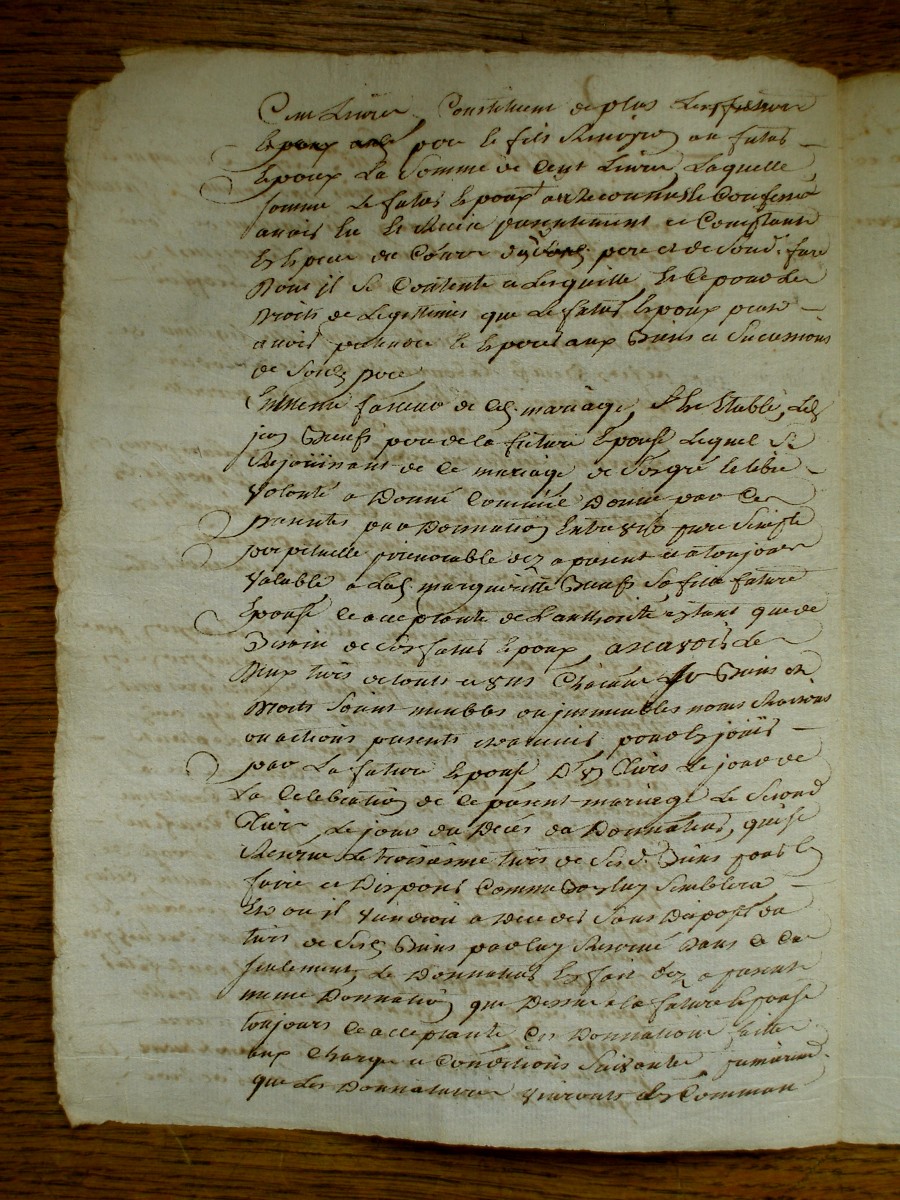 Cent Livres, Constituent de plus
Epoux pere le fils au futur
Epoux La Somme de Cent Livres Laquelle
somme Le futur Epoux Confesse
avoir Eu Et Receu presentement et Comptant
Et pere et de Sond. frere
Dont il Se Contente et Les quitte, Et Ce pour Les
Droits de Legitimes que Le futur Epoux peut
avoir pretendre Et Esperer aux Biens et Successions
de Sond. pere
En meme faveur de Ced. mariage, S'Est Etably, Led.
pere de la future Epouse Lequel Se
Rejoüissant de Ce mariage de Son gré Et libre
Volonté a Donné Comme il Donne par Ces
presentes par Donnation Entre Vifs pure Simple
perpetuelle irrevocable dez a present et a toujours
Valable a Lad. margueritte Sa fille future
Epouse Ce acceptante de L'authorité Estant que de
Besoin de Son futur Epoux, a scavoir Les
Deux tiers de touts et uns Chacuns Biens et
Droits Soient meubles ou immeubles noms Raisons
ou actions presents et advenir, pour En joüir
par La future Epouse, D'un tiers Le jour de
La Celebration de Ce present mariage Le Second
tiers, Le jour du Decés du Donnateur, qui se
Reserve Le troisieme tiers de Sesd. Biens pour En
faire et Disposer Comme Bon luy Semblera
Et ou il Viendroit a Deceder Sans Disposer du
tiers de Sesd. Biens par luy Reservé Dans Ce Cas
Seulement, Le Donnateur En fait dez a present
meme Donnation que Dessus a la future Epouse
toujours Ce acceptante Ces Donnations faites
aux Charges et Conditions Suivantes,
que Les Donnataires Vivront En Commun